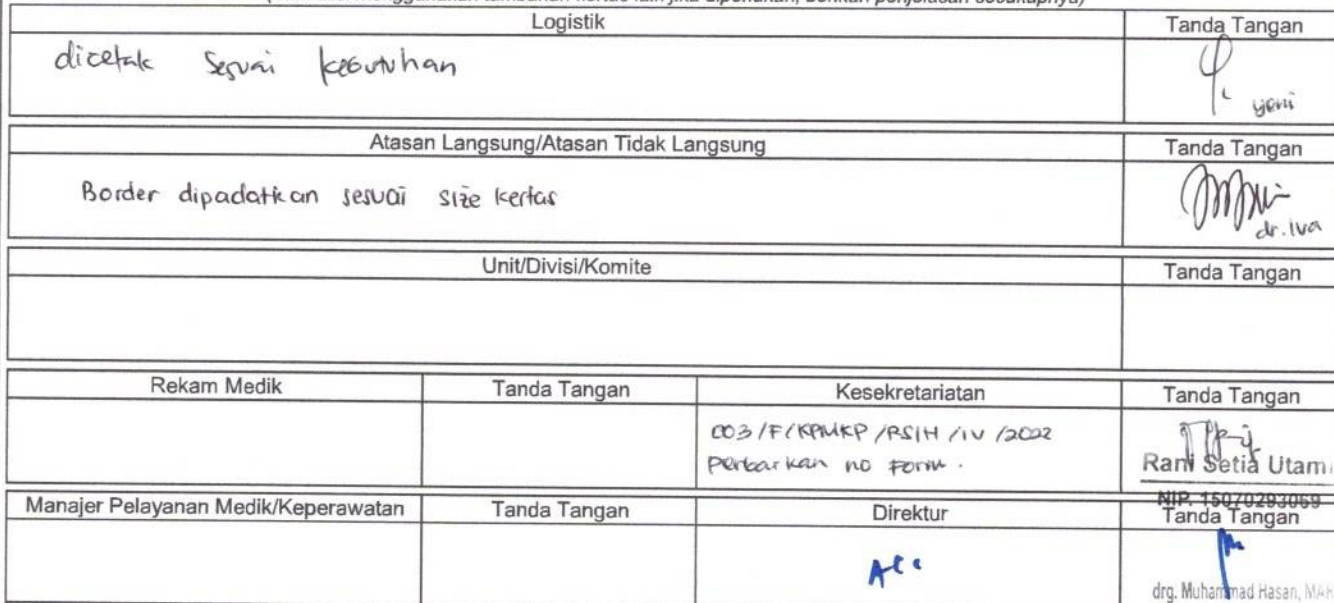 Logistik Tanda Tangan
dicetak Sesuai kebutuhan
yeni
Atasan Langsung/Atasan Tidak Langsung Tanda Tangan
Border dipadatkan sesuai size kertas
dr. Iva
Unit/Divisi/Komite Tanda Tangan
Rekam Medik Tanda Tangan Kesekretariatan Tanda Tangan
003/F/KPMKP/RSIH/IV/2022
no Form.
Rani Setia Utami
NIP. 15070293069
Manajer Pelayanan Medik/Keperawatan Tanda Tangan Direktur Tanda Tangan
Acc
drg. Muhammad Hasan, MAR